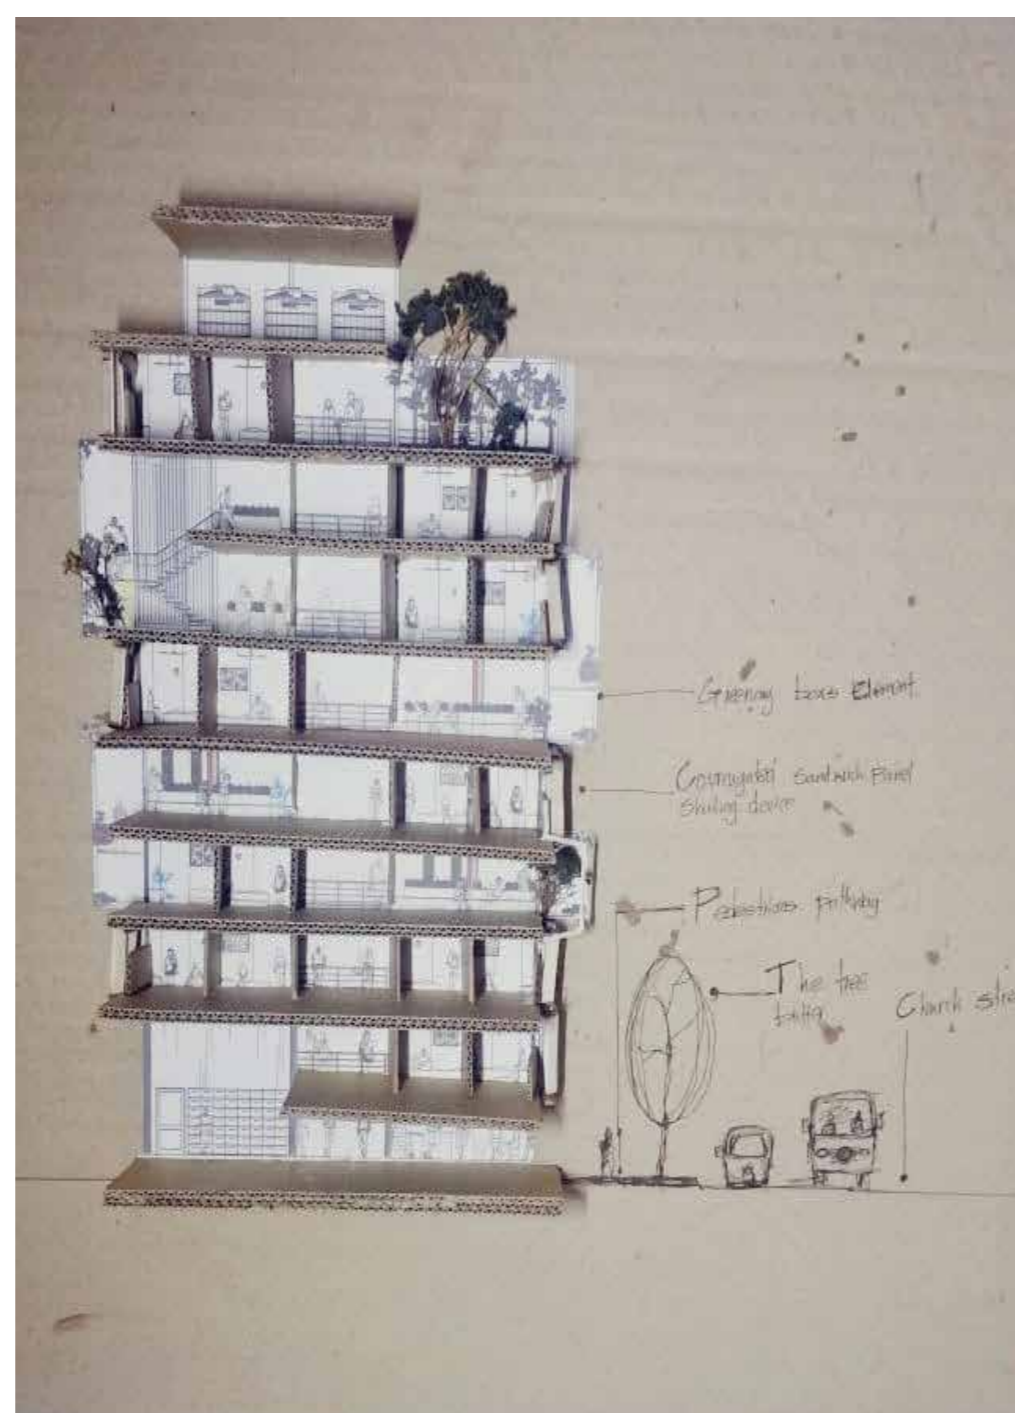 Greening boxes Element
Corrugated sandwich Panel
Shading device
Pedestrians pathway
The tree
Church stre